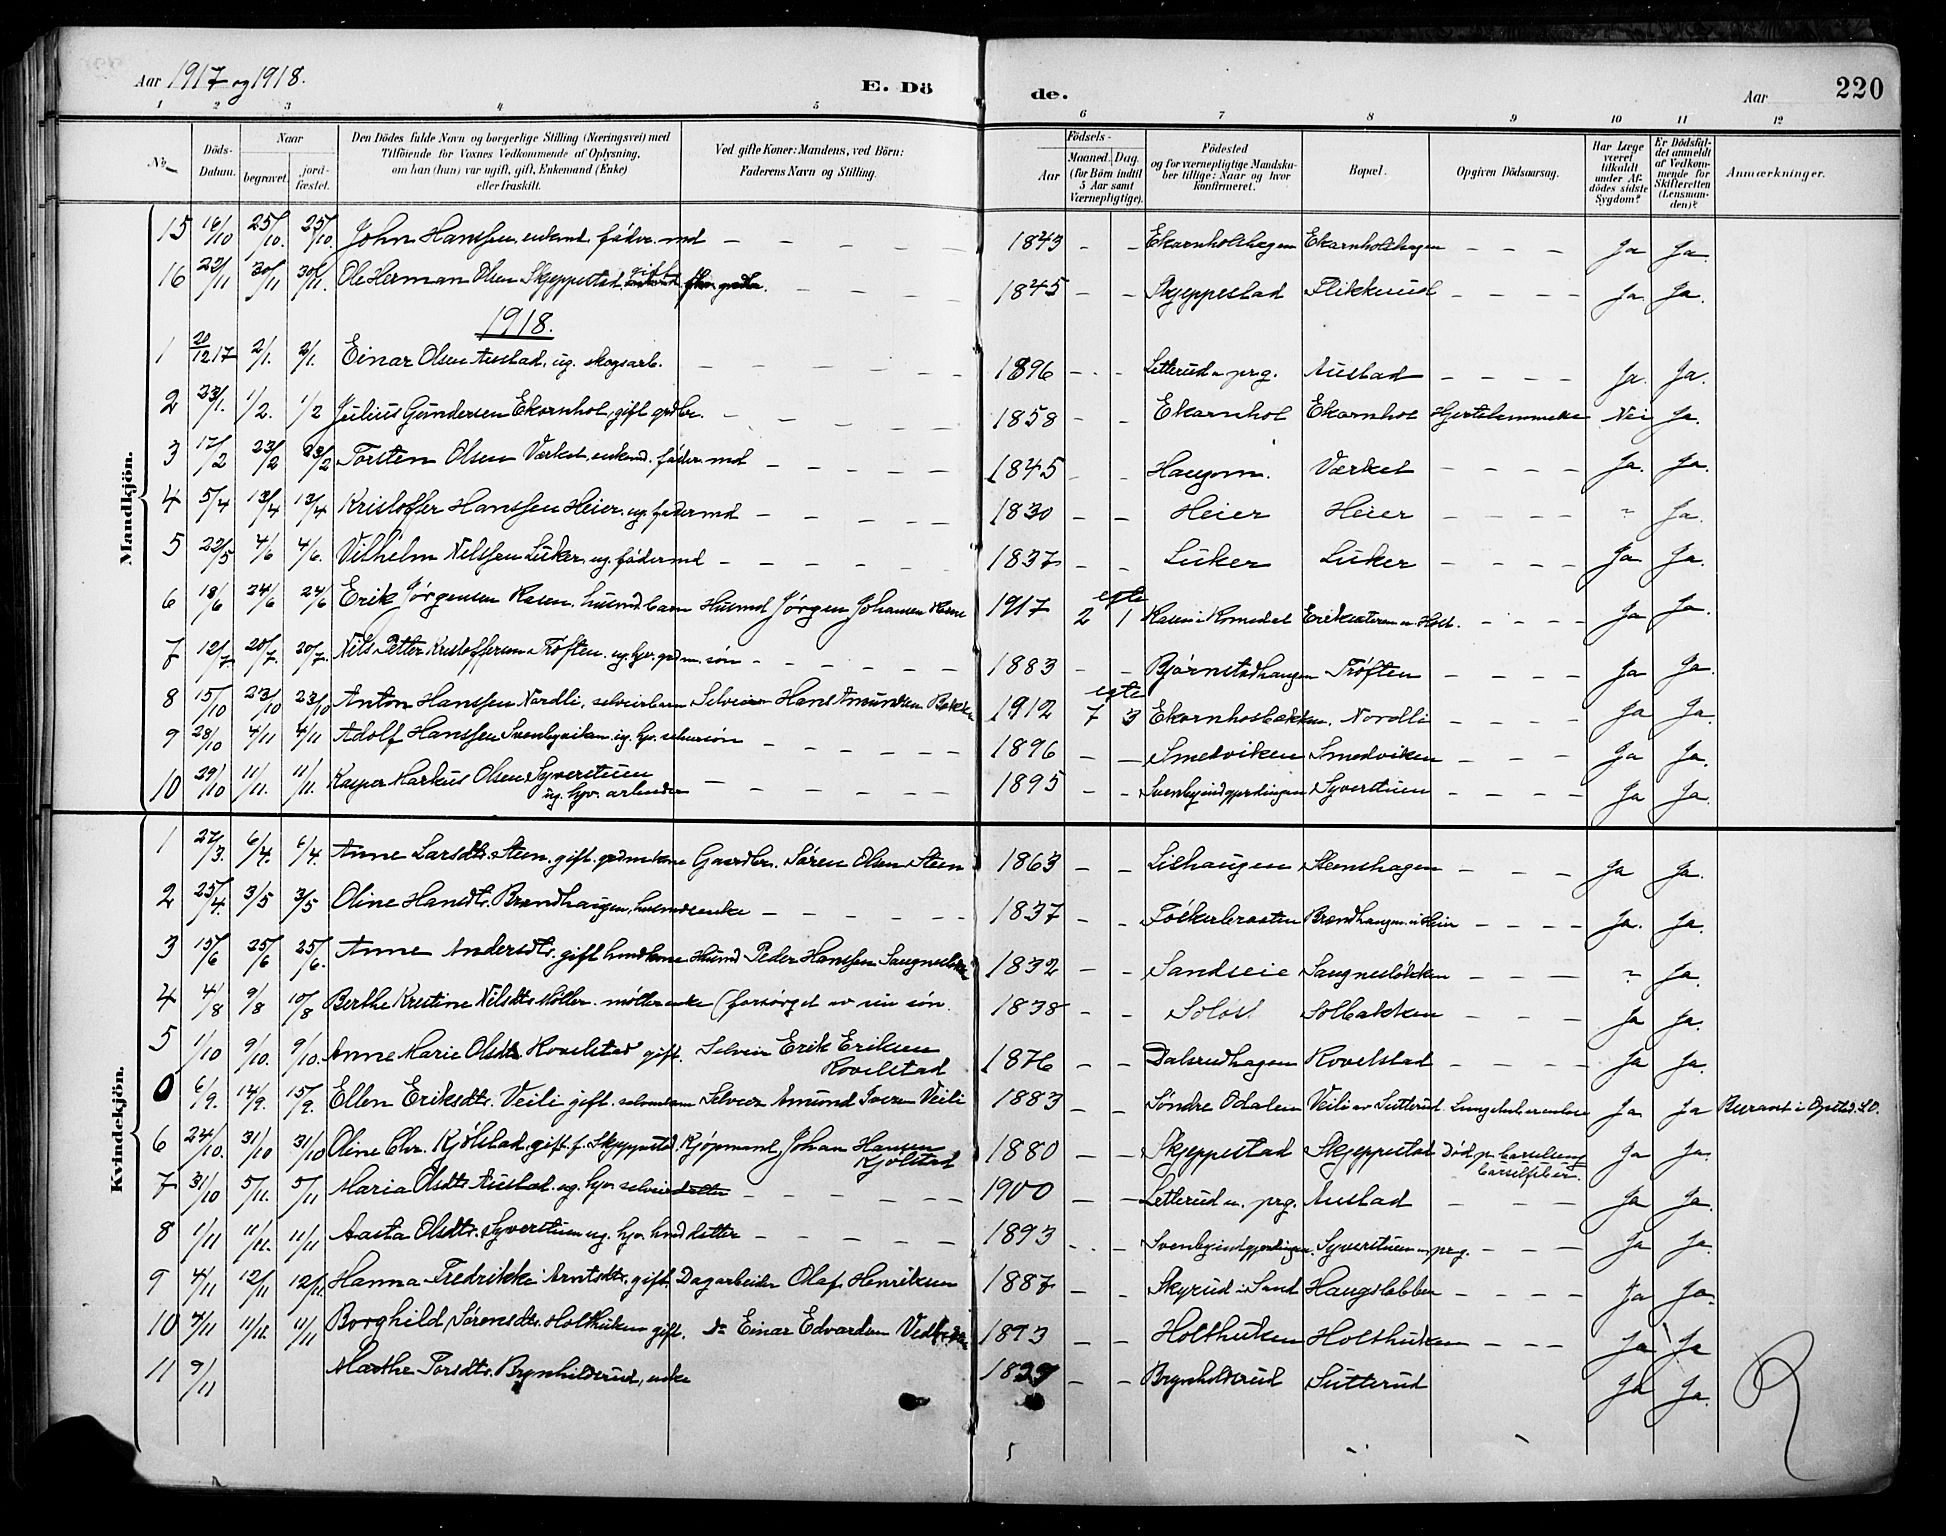 Aar 1917 og 1918.
E. Dö
de.
Aar
220
1 2 3 4 5 6 7 8 9 10 11 12
No.
Döds-Datum.
Naar
begravet.
jord-fæstet.
Den Dödes fulde Navn og borgerlige Stilling (Næringsvei) med
Tilföiende for Voxnes Vedkommende af Oplysning,
om han (hun) var ugift, gift, Enkemand (Enke)
eller fraskilt.
Ved gifte Koner: Mandens, ved Börn:
Faderens Navn og Stilling.
Födsels-
Aar
Maaned. Dag.
(for Börn indtil
5 Aar samt
Værnepligtige).
Födested
og for værnepligtige Mandskaber tillige: Naar og hvor konfirmeret.
Bopæl.
Opgiven Dödsaarsag.
Har Læge været tilkaldt under Afdödes sidste Sygdom?
Er Dödsfaldet anmeldt af Vedkommende for Skifteretten (Lensmanden)?
Anmærkninger.
Mandkjön.
15 16/10 25/10. 25/10. John Hanssen enkemd. föder. md – – – – – 1843 – – Ekornholshagen Ekornholshagen – – – – Ja Ja.
16 22/11 30/11 30/11. Ole Herman Olsen Skjeppestad gift – – – – 1845 – – Skjeppestad Flikkerud – – – – Ja. Ja.
1918.
1 20/12 17 2/1. 2/1. Einar Olsen Austad, ug. skogsarb. – – – – – – 1896 – – – Letterud u. prg. Austad – – – – Ja. Ja.
2 23/1. 1/2. 1/2 Julius Gundersen Ekornhol, gift grdbr. – – – – – 1858 – – Ekornhol Ekornhol Hjertelammelse Nei Ja.
3 17/2 23/2 23/2 Torsten Olsen Værket, enkemd. föder. md – – – – – 1845 – – Haugom. Værket – – – – Ja. Ja.
4 5/4 13/4 13/4 Kristoffer Hanssen Heier, ug. föder md – – – – – 1830 – – Heier Heier – – – – " Ja.
5 22/5 4/6 4/6. Vilhelm Nilssen Luker, ug. föder md – – – – – – 1837 – – Luker Luker – – – – Ja Ja.
6 18/6 24/6 24/6 Erik Jørgensen Rasen, husmd.barn Husmd Jørgen Johansen Rasen 1917 egte 2 1 Rasen i Romedal – – – – Ja Ja.
7 12/7. 20/7. 20/7. Nils Petter Kristoffersen Trøften. ug. hjv. grdm. søn – – – – – – 1883 – – Bjørnstadhaugen Trøften – – – – Ja Ja.
8 15/10 23/10 23/10 Anton Hanssen Nordli, selveierbarn Selveier Hans Amundsen Bakken 1912 egte 7 3 Ekornhosbakken, Nordli – – – – Ja Ja.
9 28/10 4/11 4/11 Adolf Hanssen ug. hjv. selveiersøn – – – – – 1896 – – Smedviken Smedviken – – – – Ja Ja.
10 29/10 11/11. 11/11. Kasper Markus Olsen Syverstuen
ug. hjv. arbeider – – – – – – 1895 – – Svenbyindgjerdingen Syverstuen – – – – Ja Ja.
Kvindekjön.
1 27/3. 6/4. 6/4. Anne Larsdtr. Steen, gift. grdm.kone Gaardbr. Søren Olsen Steen 1863 – – Lilhaugen Stenshagen – – – – Ja Ja.
2 25/4. 3/5 3/5 Oline Hansdtr. Brændhaugen, husmdsenke – – – – – – 1837 – – Brændhaugen – – – – Ja. Ja.
3 15/6 25/6 25/6. Anne Andersdtr. gift hmdkone Husmd Peder Hanssen Saugnesløkken 1832 – – Sandseie Saugnesløkken – – – – " Ja.
4 4/8 9/8 10/8 Berthe Kristine Nilsdtr Møller. møllerenke (forsørget av sin søn. 1838 – – Soløst Solbakken – – – – Ja Ja.
5 1/10 9/10. 9/10. Anne Marie Olsdtr. Rovelstad gift. Selveier Erik Eriksen
Rovelstad 1876 – – Dalsrudhagen Rovelstad – – – – Ja Ja.
0 6/9. 14/9. 15/9. Ellen Eriksdtr. Veili gift. Selveier Amund Iversen Veili 1883 – – Søndre Odalen Veili av Sutterud Ja Ja
6 24/10. 31/10 31/10 Oline Chr. Kjølstad, gift f. Skjeppestad. Kjøpmand, Johan Hansen
Kjølstad 1880 – – Skjeppestad Skjeppestad Død p. barselseng
barselfeber. Ja Ja.
7 31/10 5/11. 5/11 Maria Olsdtr. Austad. ug. hjv. selveierdatter – – – – – – 1900 – – Letterud u. prg. Austad – – – Ja Ja.
8 1/11 11/11. 11/11 Aasta Olsdtr. Syverstuen ug. hjv. hmd datter – – – – – 1893 – – – Svenbyindgjerdingen. Syverstuen u. prg. – – – Ja Ja.
9 4/11 12/11 12/11. Hanna Fredrikke Arntsdtr. gift. Dagarbeider Olaf Henriksen 1887 – – Skyrud i Sand Haugslabben – – – – Ja Ja.
10 7/11 11/11. 11/11 Borghild Sørensdtr. Holthuken gift. Do Einar Edvardsen 1893 – – Holthuken Holthuken – – – Ja Ja
11 9/11 Marthe Torsdtr. Brynhildsrud, enke 1839 – – Brynhildsrud Sutterud Ja Ja.